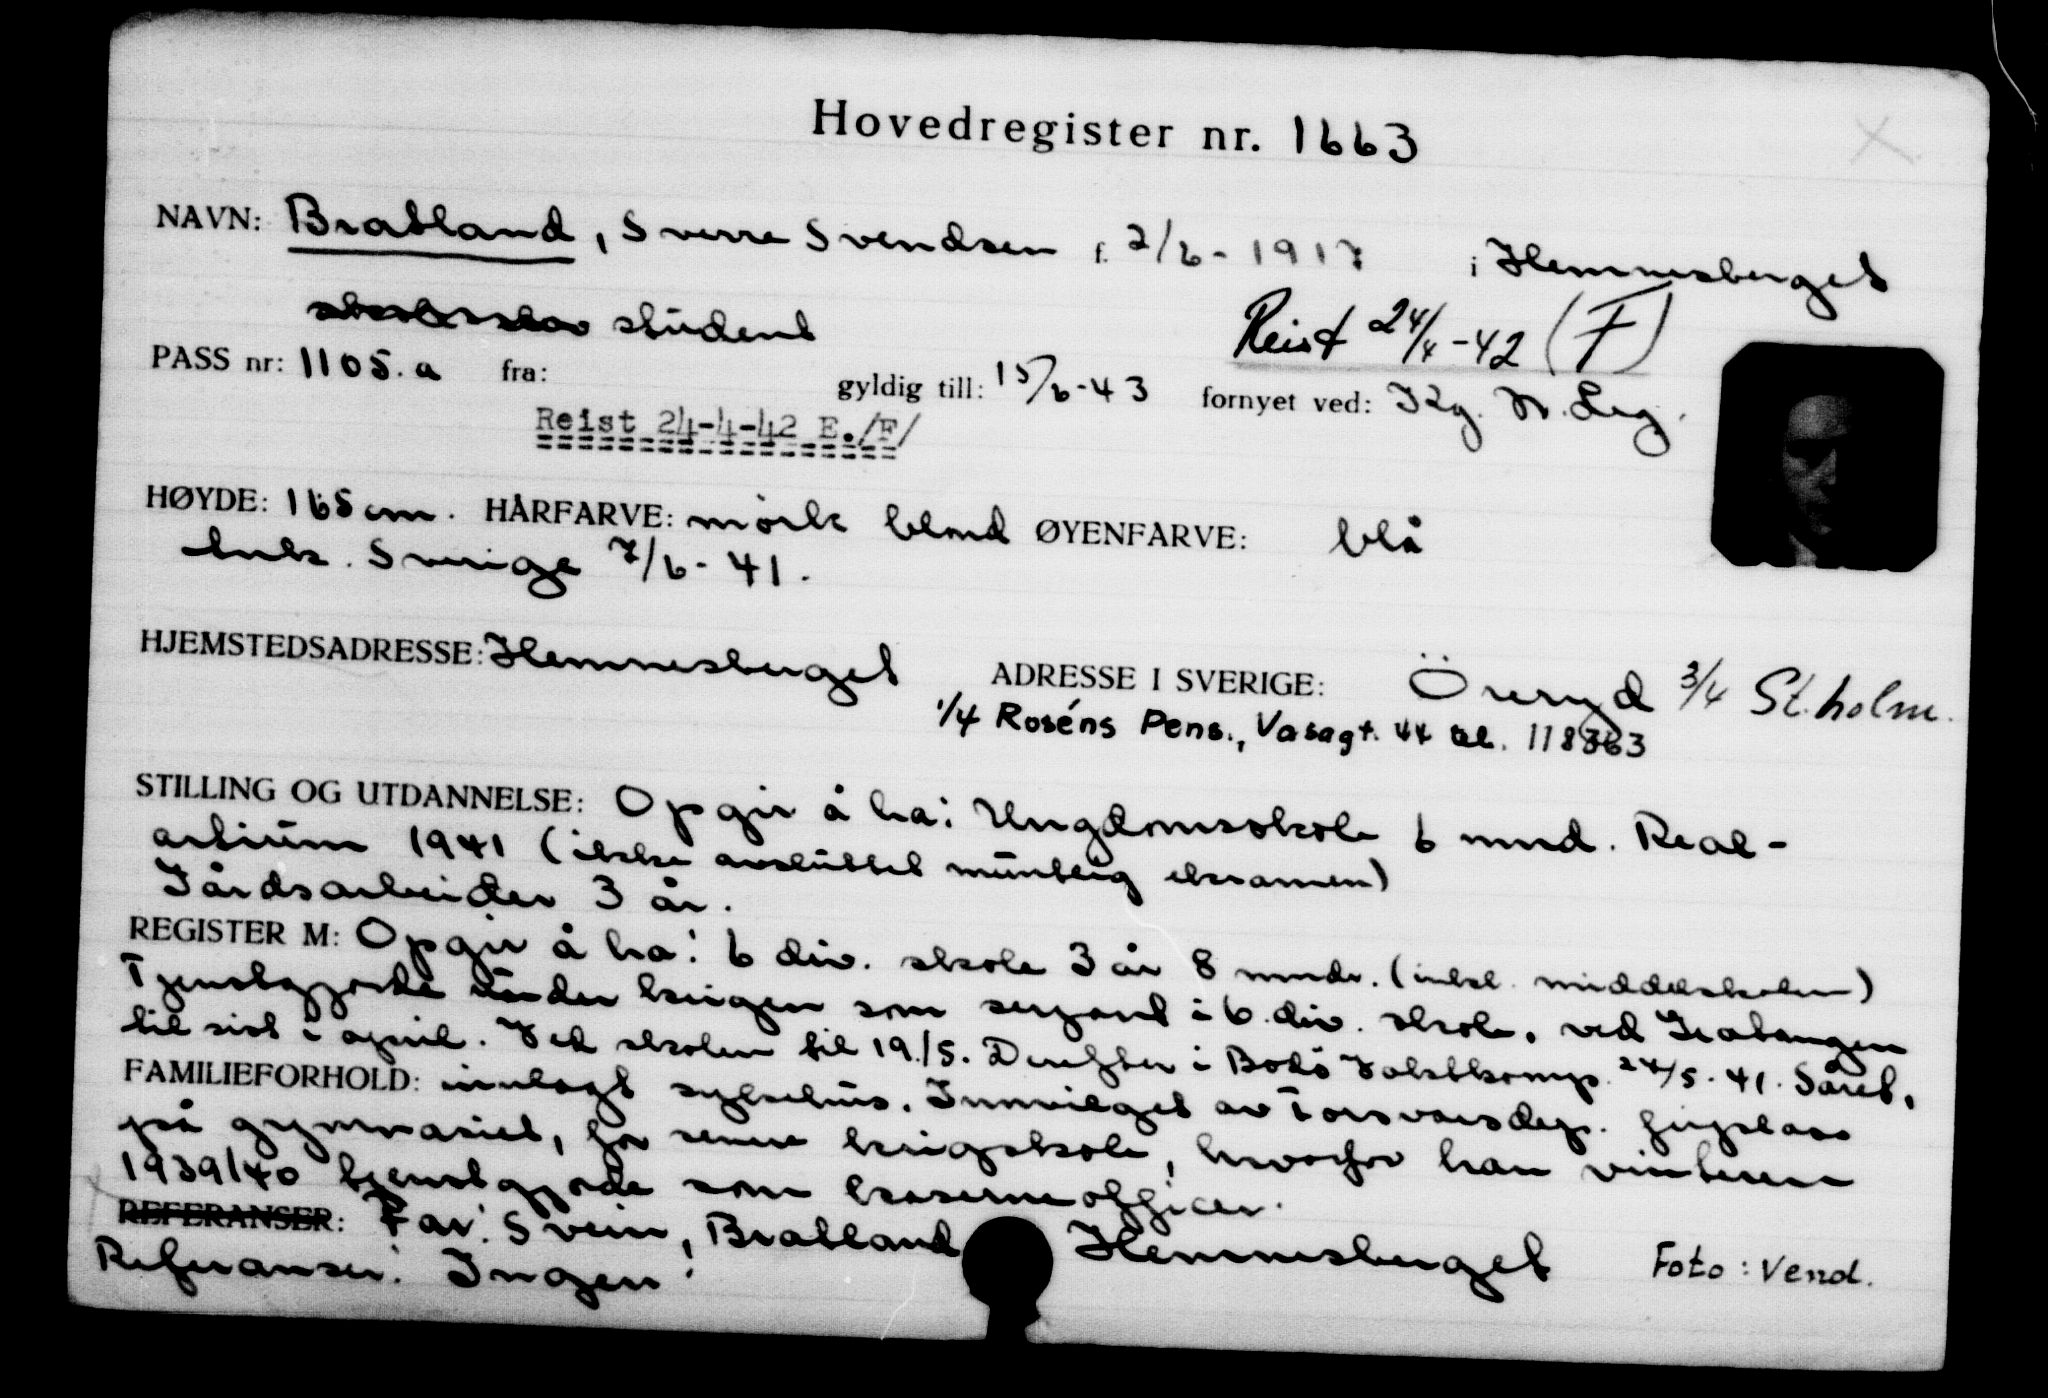 Hovedregister nr. 1663
NAVN: Bratland, Sverre Svendsen f. 2/6-1917 i Hemnesberget
student Reist 24/4-42 (F)
PASS nr: 1105.a fra: gyldig till: 15/6-43 fornyet ved: Kg. N. Leg.
Reist 24-4-42 E./F/
HØYDE: 165 cm. HÅRFARVE: mörk blond ØYENFARVE: blå
Ank. Sverige 7/6-41.
HJEMSTEDSADRESSE: Hemnesberget ADRESSE I SVERIGE: Öreryd 3/4 St.holm.
1/4 Roséns Pens., Vasagt. 44 tel. 118363
STILLING OG UTDANNELSE: Opgir å ha: Ungdomsskole 6 mnd. Real-
artium 1941 (ikke avsluttet muntlig eksamen)
Gårdsarbeider 3 år.
REGISTER M: Opgir å ha: 6 div. skole 3 år 8 mndr. (inkl. middelskolen)
Tjenstgjorde under krigen som sersjant i 6. div. skole, ved Gratangen
til sist i april. På skolen til 19/5. Derefter i Bodö 24/5-41. Såret,
FAMILIEFORHOLD: innlagt sykehus. Innvilget av Forsvarsdep. friplass
på gymnasiet, for senere krigsskole, hvorfor han vinteren
1939/40 tjenstgjorde som kaserneofficer.
REFERANSER: Far: Svein, Bratland, Hemnesberget Foto: Vend.
Referanser: Ingen!